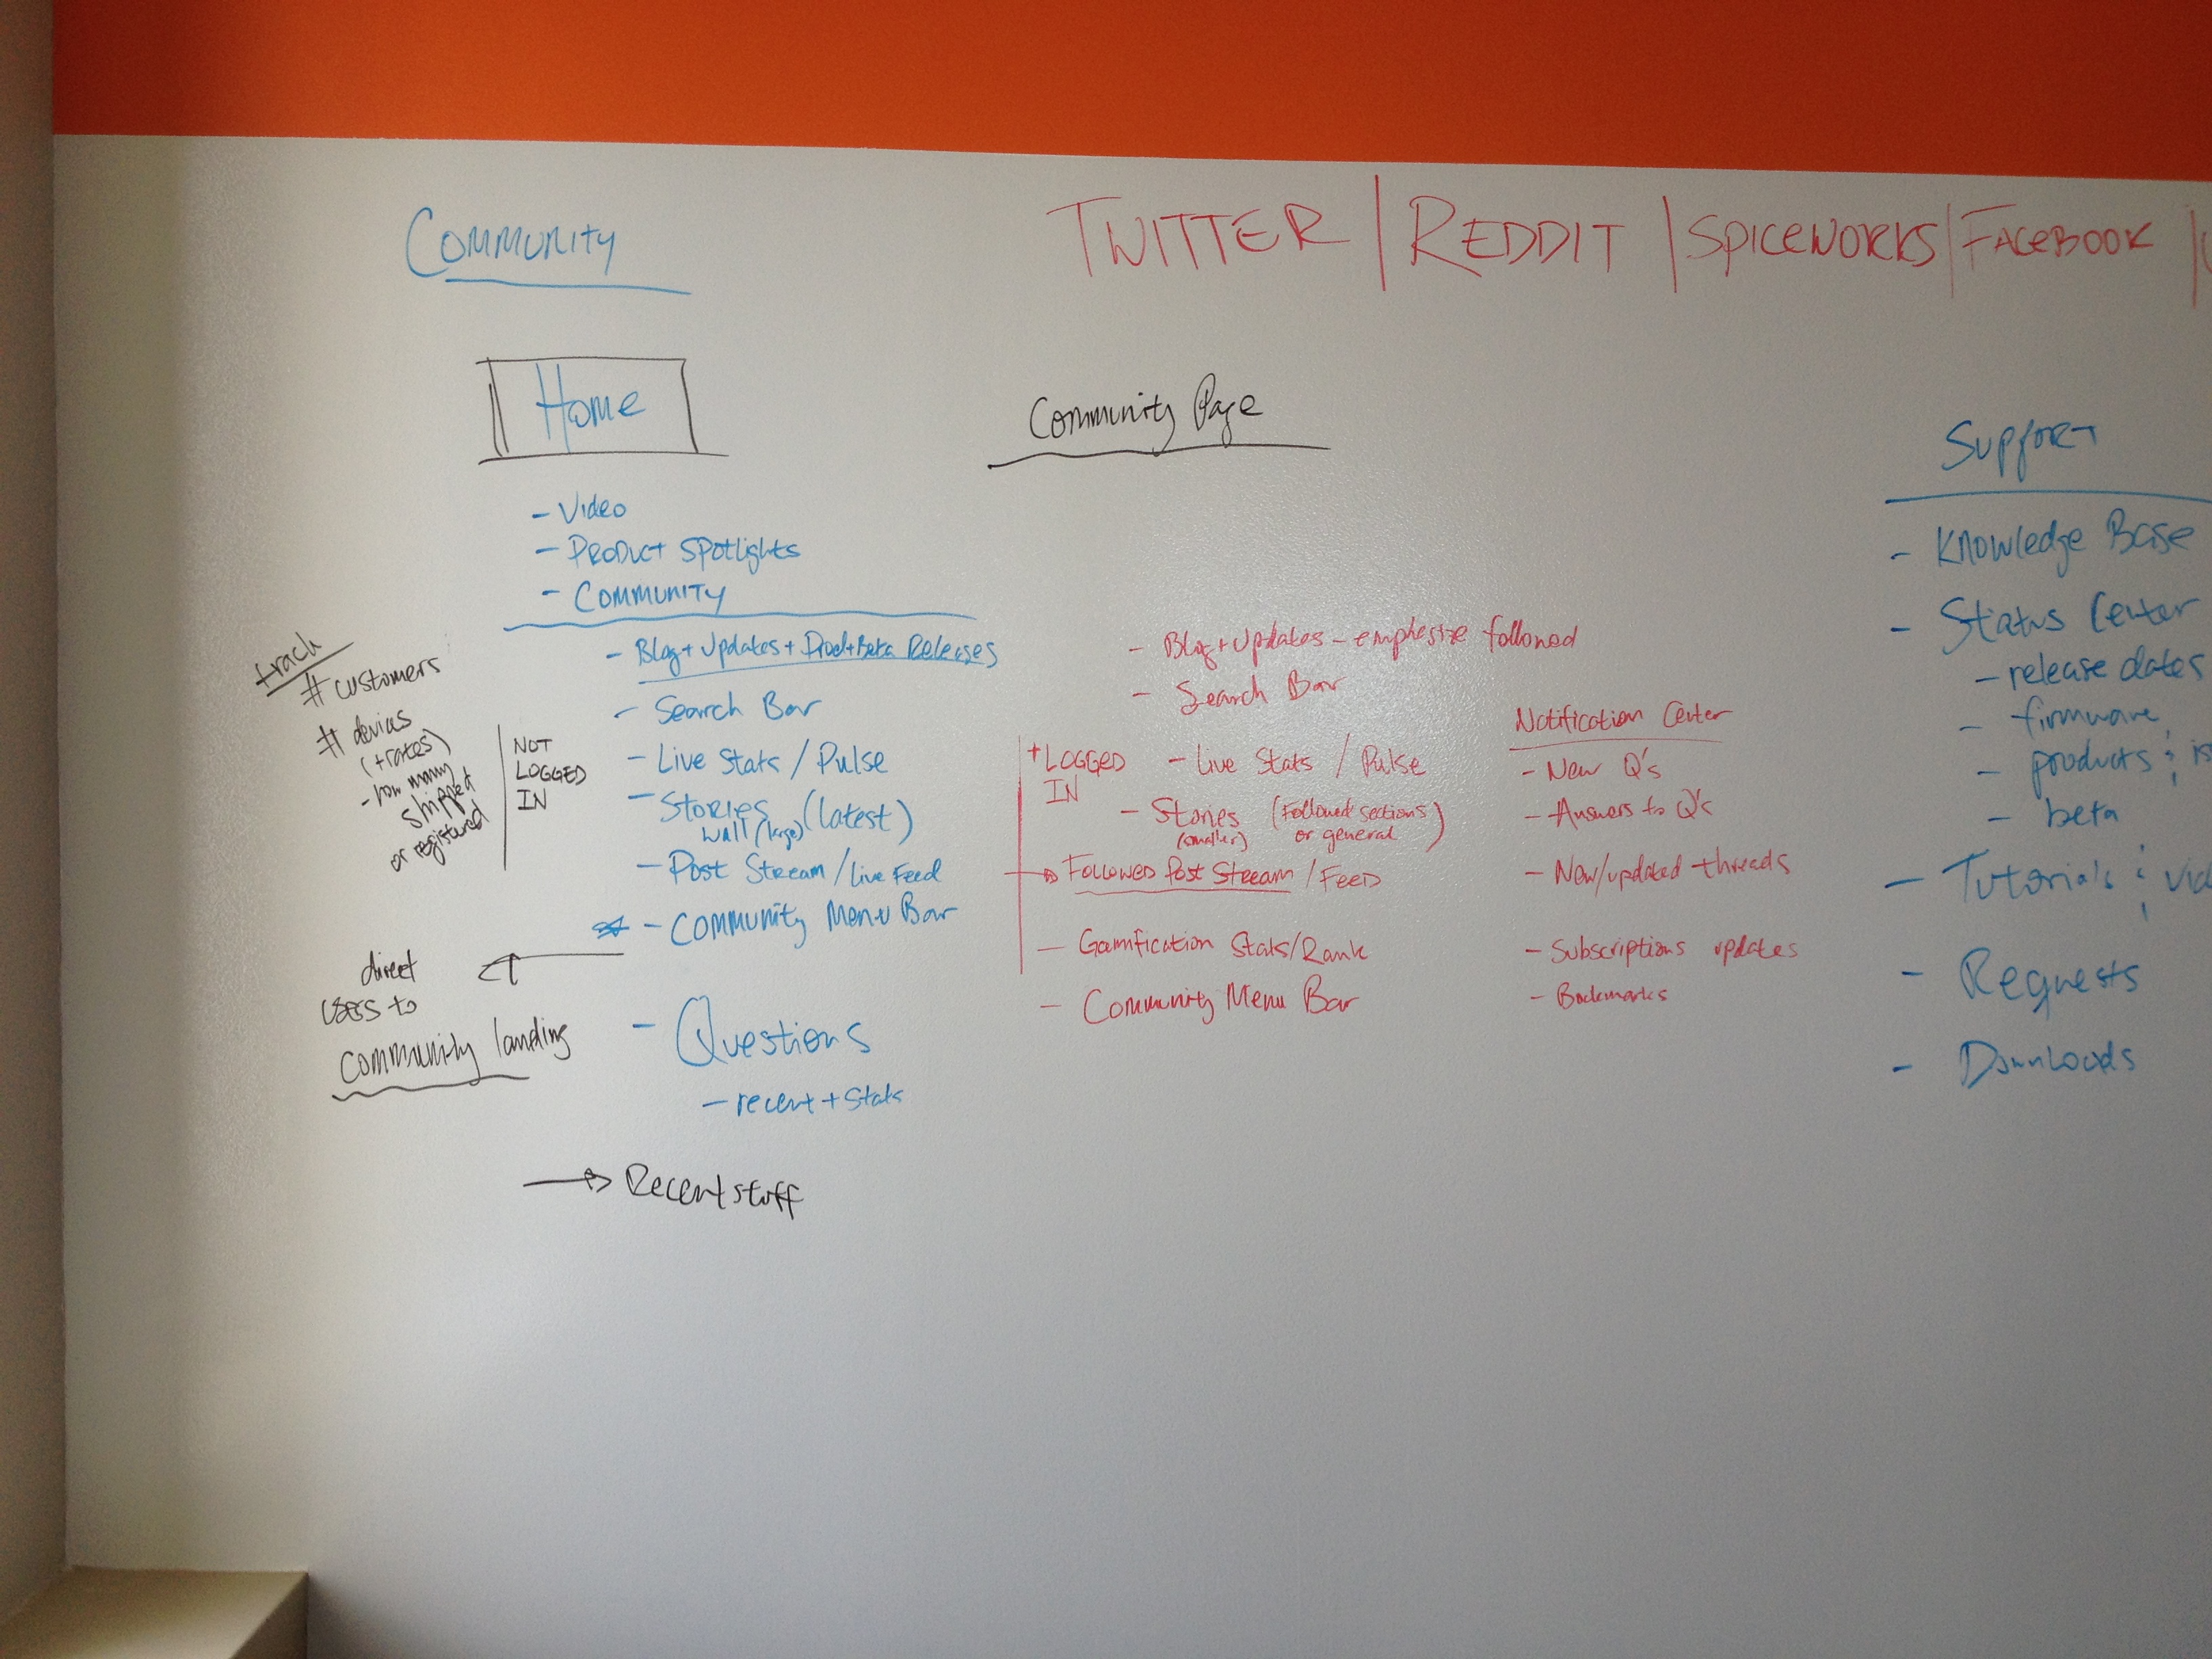 COMMUNITY
TWITTER | REDDIT | SPICEWORKS | FACEBOOK |
Home
- Video
- PRODUCT SPOTLIGHTS
- COMMUNITY
- Blog + Updates + Prod + Beta Releases
- Search Bar
- Live Stats / Pulse
- STORIES (latest)
wall (large)
- Post Stream / Live Feed
- COMMUNITY Menu Bar
- Questions
- recent + stats
→ Recent stuff
track
# customers
# devices
(+ rates)
- how many
shipped
or registered
NOT
LOGGED
IN
direct
users to
community landing
Community Page
- Blog + Updates - emphasize followed
- Search Bar
+ LOGGED
IN
- Live Stats / Pulse
- Stories (Followed sections
(smaller) or general)
→ FOLLOWED Post Stream / FEED
- Gamification Stats/Rank
- Community Menu Bar
Notification Center
- New Q's
- Answers to Q's
- New/updated threads
- Subscriptions updates
- Bookmarks
Support
- Knowledge Base
- Status Center
- release dates
- firmware
- products
- beta
- Tutorials
- Requests
- Downloads